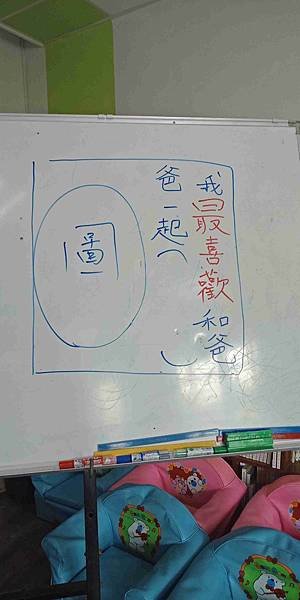 我最喜歡和爸
爸一起( )
圖